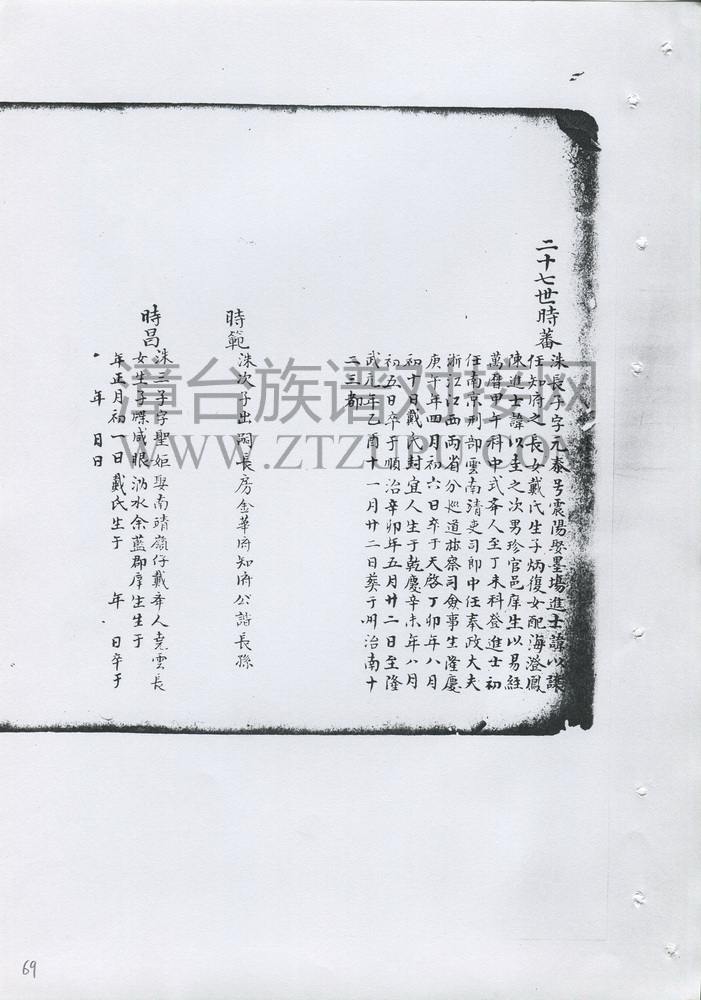 二十七世時蕃
洙長子字元泰号震陽娶墨場進士諱以讓
任知府之長女戴氏生子炳復女配海澄鳳
陳進士諱以圭之次男珍官邑庠生以易經
萬曆甲午科中式乔人至丁未科登進士初
任南京刑部雲南清吏司郎中任奉政大夫
浙江江西兩省分巡道按察司僉事生隆慶
庚午年四月初六日卒于天啓丁卯年八月
初十日戴氏封宜人生于乾慶辛未年八月
初五日卒于順治辛卯年五月廿二日至隆
武元年乙酉十一月廿二日葵于州治南十
二三都
時範
洙次子出嗣長房金華府知府公諧長孫
時昌
洙三子字聖姖娶南靖嶺仔戴乔人堯雲長
女生子喋咸眼沩水余藍郡庠生生于
年正月初一日戴氏生于 年 日卒于
年 月 日
漳台族谱对接网
WWW.ZTZUPU.COM
69